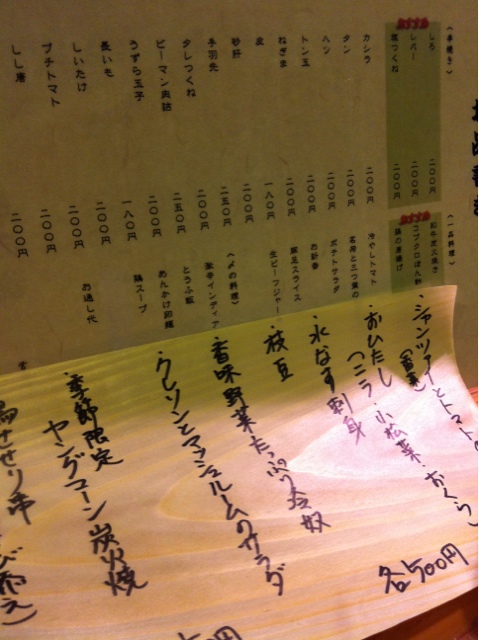 (串焼き)
しろ 二〇〇円
レバー 二〇〇円
塩つくね 二〇〇円
カシラ 二〇〇円
タン 二〇〇円
ハツ 二〇〇円
トン玉 二〇〇円
ねぎま 二〇〇円
皮 一八〇円
砂肝 二〇〇円
手羽先 二五〇円
タレつくね 二〇〇円
ピーマン肉詰 二五〇円
うずら玉子 二〇〇円
長いも 一八〇円
しいたけ 二〇〇円
プチトマト 二〇〇円
しし唐 二〇〇円
(一品料理)
鶏の唐揚げ
冷やしトマト
ポテトサラダ
お新香
豚足スライス
生ビーフジャー
(〆の料理)
激辛インディア
とうふ飯
あんかけ
鶏スープ
お通し代
・シャンツァイとトマトの
(香菜)
・おひたし
(ニラ・小松菜・おくら)
・水なす刺身
・枝豆
・香味野菜たっぷり冷奴
・クレソンとマッシュルームのサラダ
・季節限定
ヤングコーン炭火焼
せせり串
び添え)
各500円
00円